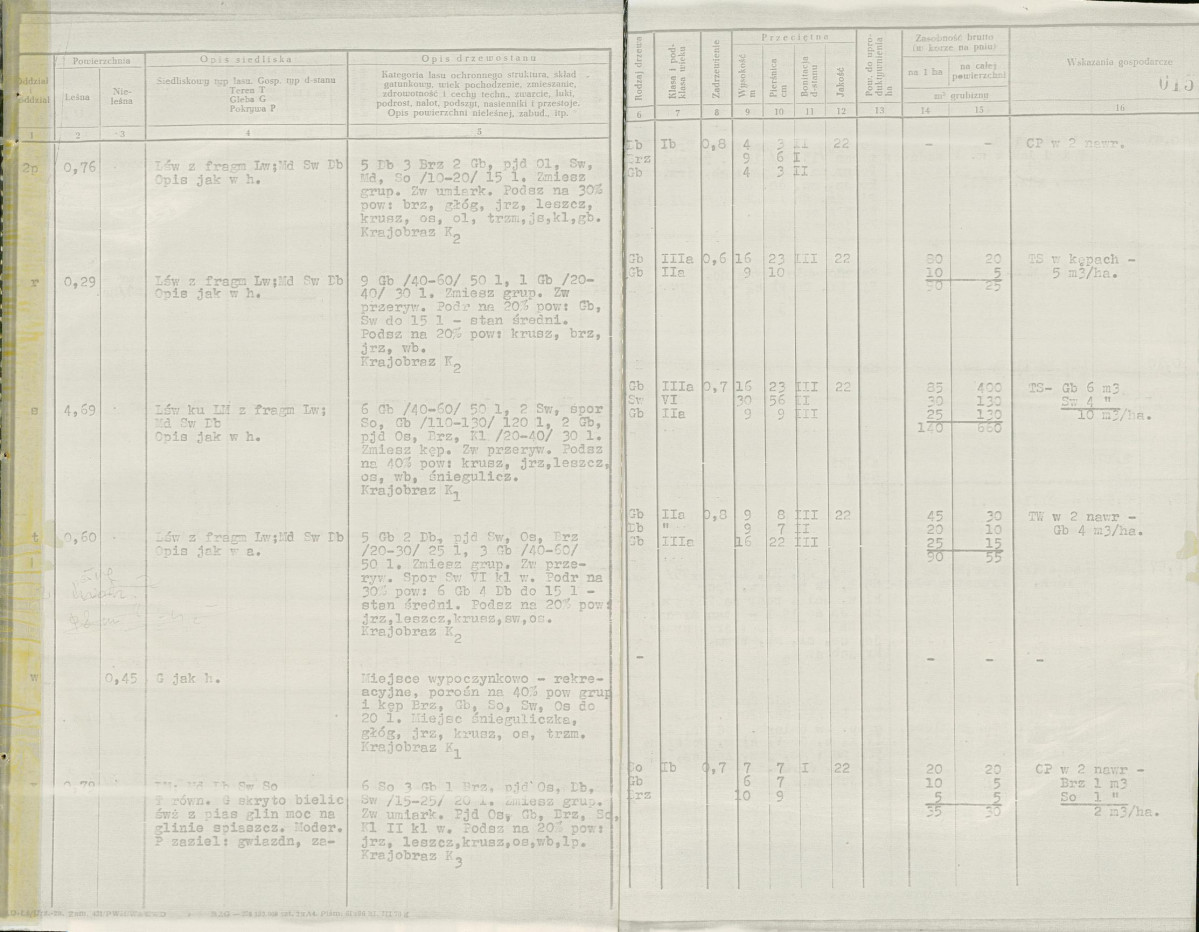 Powierzchnia
Opis siedliska
Opis drzewostanu
oddział
i
oddział
Leśna
Nie-
leśna
Siedliskowy typ lasu. Gosp. typ d-stanu
Teren T
Gleba G
Pokrywa P
Kategoria lasu ochronnego struktura, skład
gatunkowy, wiek pochodzenie, zmieszanie,
zdrowotność i cechy techn., zwarcie, luki,
podrost, nalot, podszyt, nasienniki i przestoje.
Opis powierzchni nieleśnej, zabud., itp.
1 2 3 4 5
2p 0,76 Lśw z fragm Lw;Md Sw Db
Opis jak w h.
5 Db 3 Brz 2 Gb, pjd Ol, Sw,
Md, So /10-20/ 15 l. Zmiesz
grup. Zw umiark. Podsz na 30%
pow: brz, głóg, jrz, leszcz,
krusz, os, ol, trzm,js,kl,gb.
Krajobraz K2
r 0,29 Lśw z fragm Lw;Md Sw Db
Opis jak w h.
9 Gb /40-60/ 50 l, 1 Gb /20-
40/ 30 l. Zmiesz grup. Zw
przeryw. Podr na 20% pow: Gb,
Sw do 15 l - stan średni.
Podsz na 20% pow: krusz, brz,
jrz, wb.
Krajobraz K2
s 4,69 Lśw ku LM z fragm Lw;
Md Sw Db
Opis jak w h.
6 Gb /40-60/ 50 l, 2 Sw, spor
So, Gb /110-130/ 120 l, 2 Gb,
pjd Os, Brz, Kl /20-40/ 30 l.
Zmiesz kęp. Zw przeryw. Podsz
na 40% pow: krusz, jrz,leszcz,
os, wb, śniegulicz.
Krajobraz K1
t 0,60 Lśw z fragm Lw;Md Sw Db
Opis jak w a.
5 Gb 2 Db, pjd Sw, Os, Brz
/20-30/ 25 l, 3 Gb /40-60/
50 l. Zmiesz grup. Zw prze-
ryw. Spor Sw VI kl w. Podr na
30% pow: 6 Gb 4 Db do 15 l -
stan średni. Podsz na 20% pow:
jrz,leszcz,krusz,sw,os.
Krajobraz K2
w 0,45 G jak h.
Miejsce wypoczynkowo - rekre-
acyjne, porośn na 40% pow grup
i kęp Brz, Gb, So, Sw, Os do
20 l. Miejsc śnieguliczka,
głóg, jrz, krusz, os, trzm.
Krajobraz K1
Md Db Sw So
T równ. G skryto bielic
świż z pias glin moc na
glinie spiaszcz. Moder.
P zaziel: gwiazdn, za-
6 So 3 Gb 1 Brz, pjd Os, Db,
Sw /15-25/ 20 l. Zmiesz grup.
Zw umiark. Pjd Os, Gb, Brz, So,
Kl II kl w. Podsz na 20% pow:
jrz, leszcz,krusz,os,wb,lp.
Krajobraz K3
Rodzaj drzewa
Klasa i pod-
klasa wieku
Zadrzewienie
Przeciętna
Wysokość
m
Pierśnica
cm
Bonitacja
d-stanu
Jakość
Pow. do upro-
duktywnienia
ha
Zasobność brutto
(w korze na pniu)
na 1 ha
na całej
powierzchni
m³ grubizny
Wskazania gospodarcze
013
6 7 8 9 10 11 12 13 14 15 16
Db Ib 0,8 4 3 II 22 - - CP w 2 nawr.
Brz 9 6 I
Gb 4 3 II
Gb IIIa 0,6 16 23 III 22 80 20 TS w kępach -
Gb IIa 9 10 10 5 5 m3/ha.
90 25
Gb IIIa 0,7 16 23 III 22 85 400 TS- Gb 6 m3
Sw VI 30 56 II 30 130 Sw 4 "
Gb IIa 9 9 III 25 130 10 m3/ha.
140 660
Gb IIa 0,8 9 8 III 22 45 30 TW w 2 nawr -
Db " 9 7 II 20 10 Gb 4 m3/ha.
Gb IIIa 16 22 III 25 15
90 55
- - - -
So Ib 0,7 7 7 I 22 20 20 CP w 2 nawr -
Gb 6 7 10 5 Brz 1 m3
Brz 10 9 5 5 So 1 "
35 30 2 m3/ha.